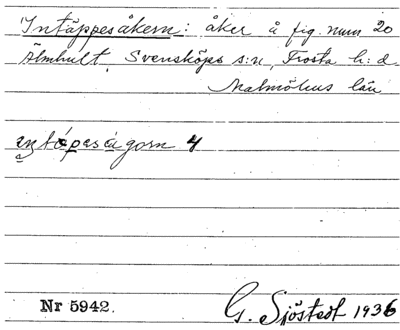 Intäppesåkern: åker å fig. num 20
Älmhult, Svensköps s:n, Frosta h:d.
Malmöhus län
Nr 5942.
G. Sjöstedt 1936